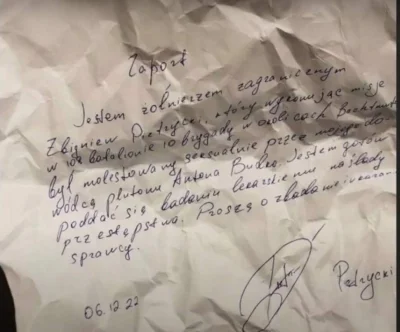 Zaport
Jestem żołnierzem zagranicznym
Zbigniew Pietrzycki, który wykonując misje
w 108 batalionie 10 brygady w okolicach Bachmuta
był molestowany seksualnie przez mojego do-
wódcę plutonu Antona Budko. Jestem gotów
poddać się badaniu lekarskiemu na ślady
przestępstwa. Proszę o zbadanie i ukaranie
sprawcy.
06.12.22